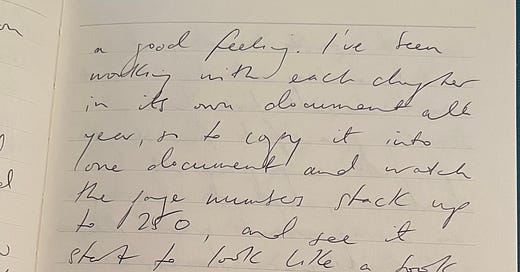 a good feeling. I've been
working with each chapter
in its own document all
year, so to copy it into
one document and watch
the page number stack up
to 250, and see it
start to look like a book